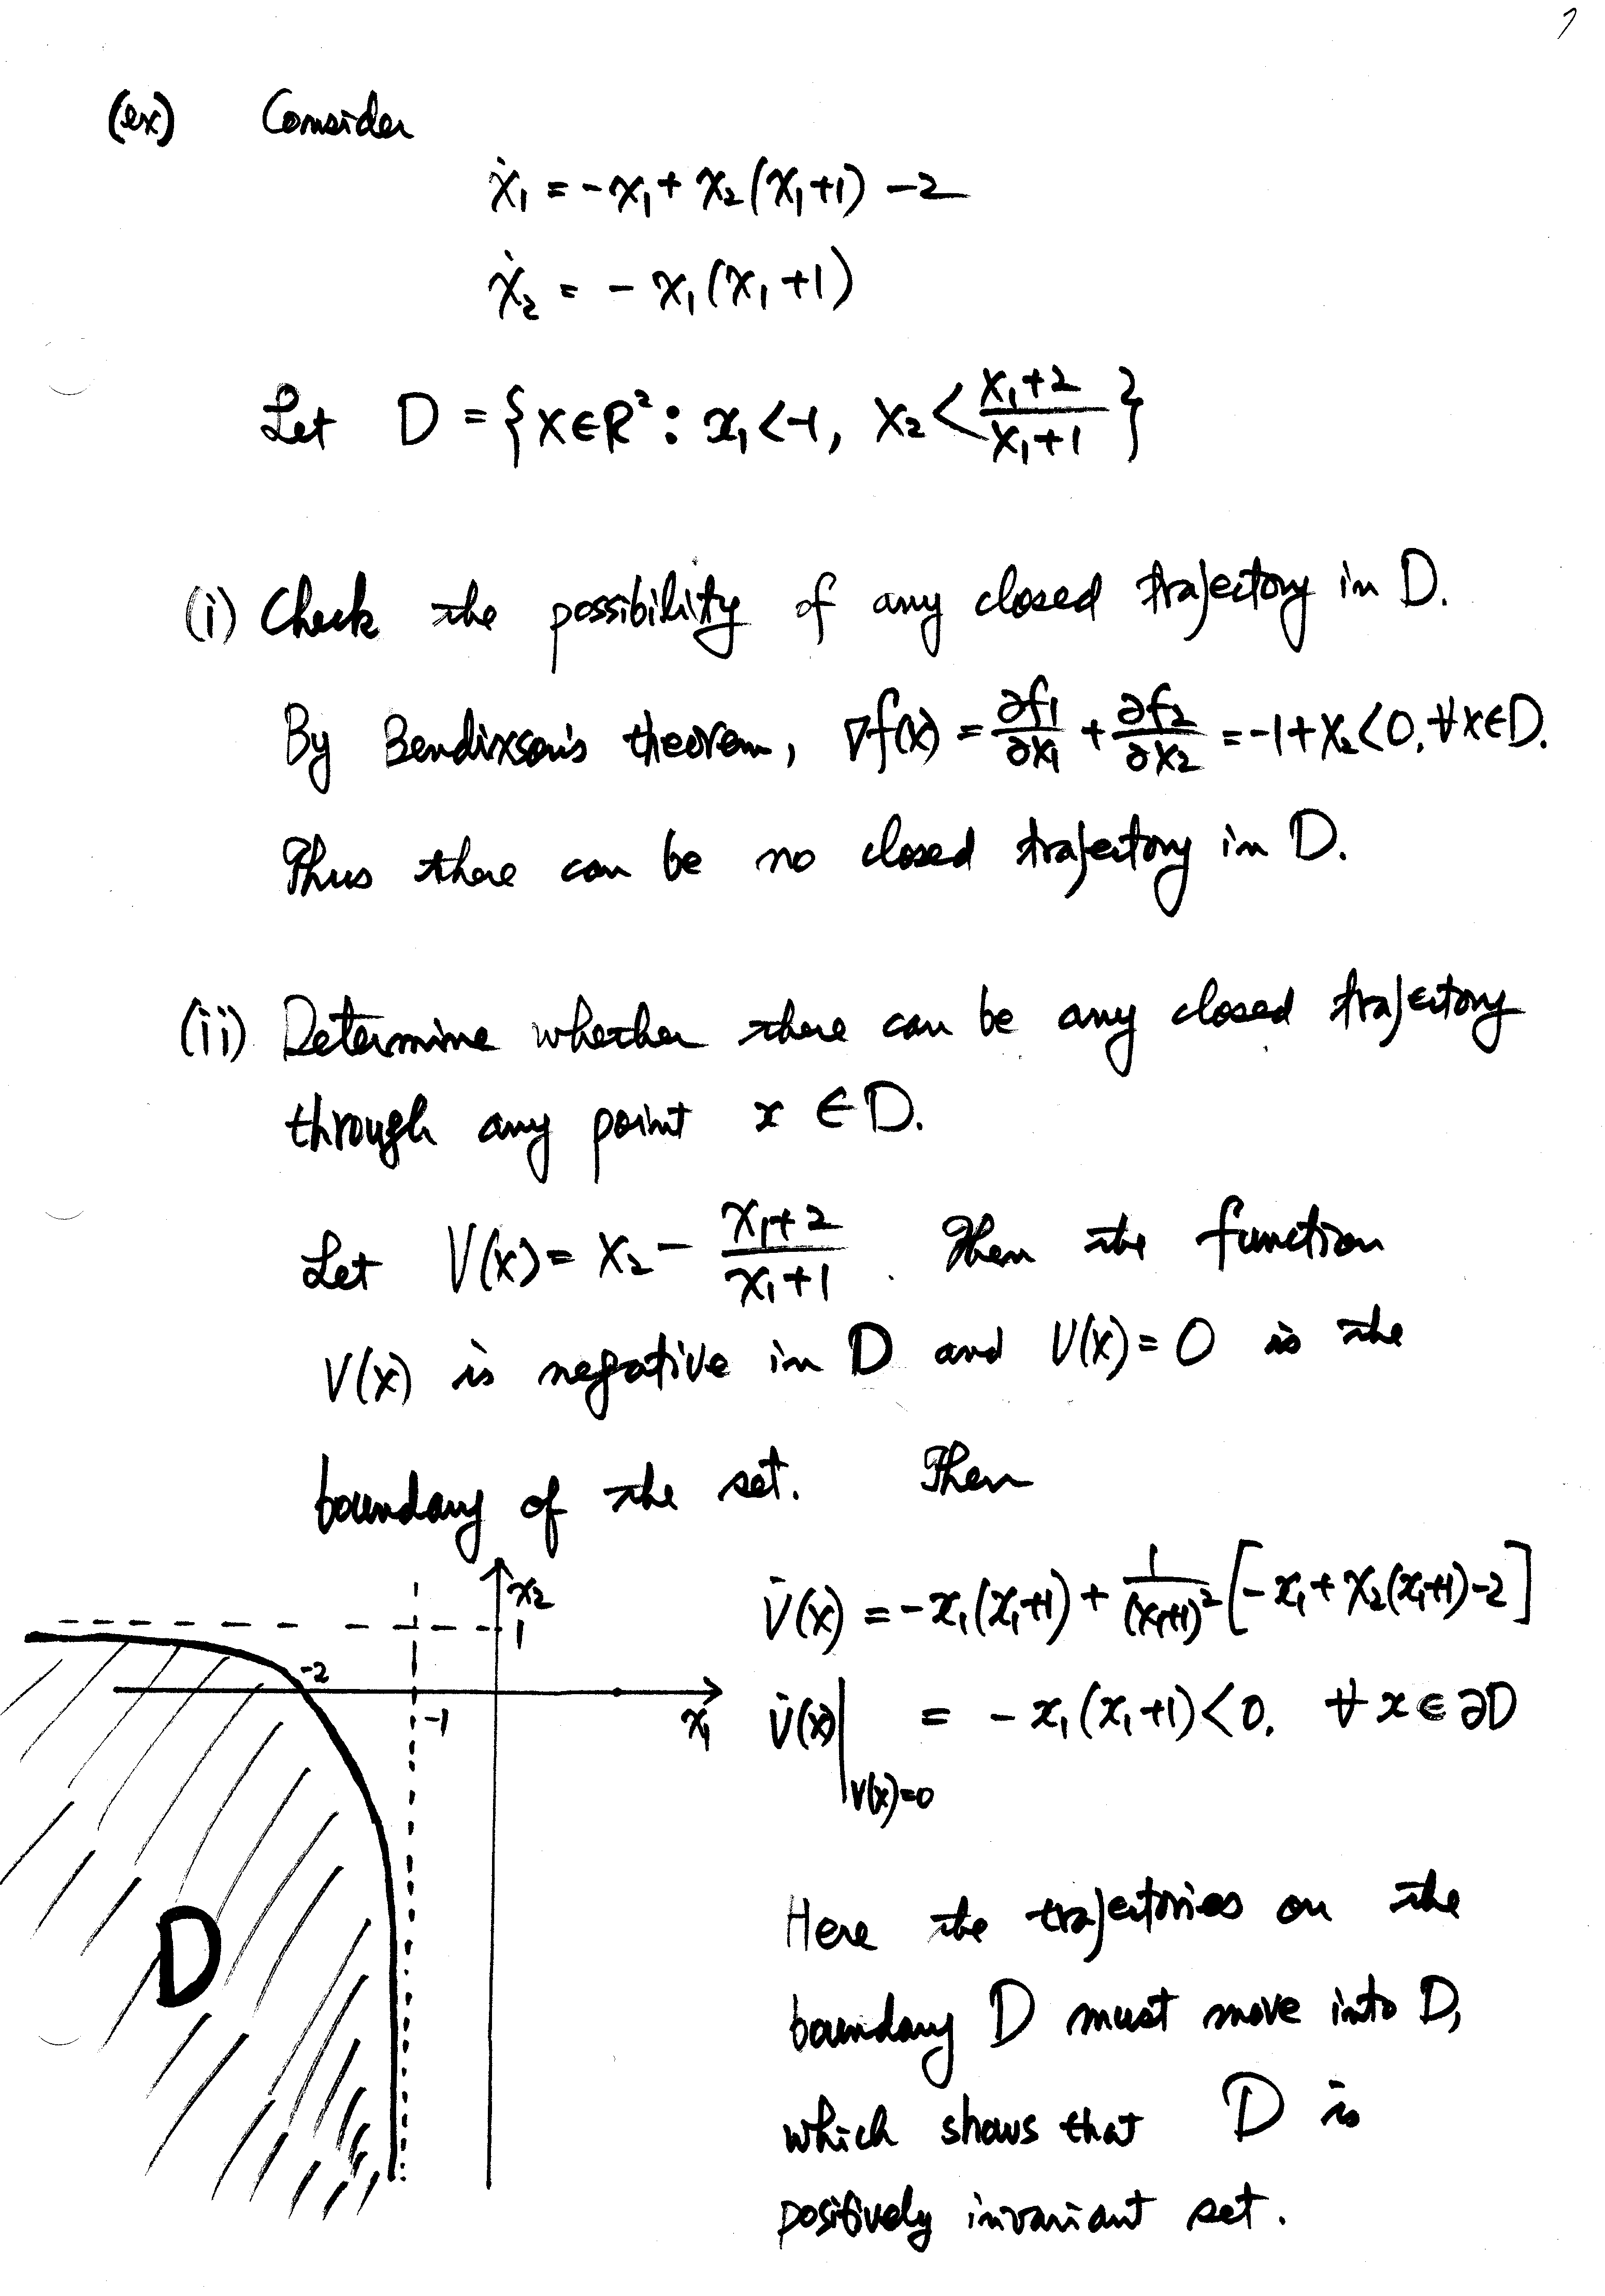 7
(ex) Consider
ẋ₁ = -x₁ + x₂(x₁+1) -2
ẋ₂ = - x₁(x₁+1)
Let D = {x∈R²: x₁<-1, x₂ < (x₁+2)/(x₁+1)}
(i) Check the possibility of any closed trajectory in D.
By Bendixson's theorem, ∇f(x) = ∂f₁/∂x₁ + ∂f₂/∂x₂ = -1+x₂<0, ∀x∈D.
Thus there can be no closed trajectory in D.
(ii) Determine whether there can be any closed trajectory
through any point x ∈ D.
Let V(x) = x₂ - (x₁+2)/(x₁+1). Then the function
V(x) is negative in D and V(x) = 0 is the
boundary of the set. Then
x₂
1
-2
-1
x₁
D
V̇(x) = -x₁(x₁+1) + 1/(x₁+1)² [-x₁ + x₂(x₁+1) -2]
V̇(x)|V(x)=0 = - x₁(x₁+1) < 0, ∀ x ∈ ∂D
Here the trajectories on the
boundary D must move into D,
which shows that D is
positively invariant set.